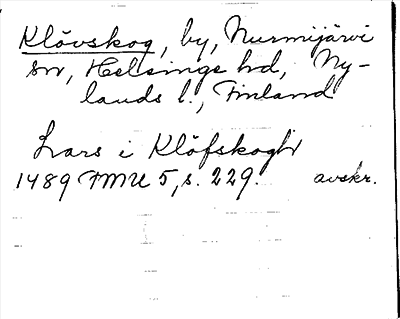 Klövskog, by, Nurmijärvi
sn, Helsinge hd, Ny-
lands l., Finland
Lars i Klöfskogh
1489 FMU 5, s. 229. avskr.